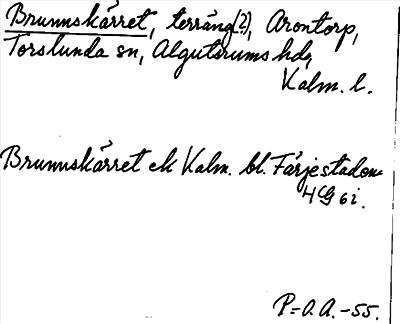 Brunnskärret, terräng(?), Arontorp,
Torslunda sn, Algutsrums hd,
Kalm. l.
Brunnskärret ek Kalm. bl. Färjestaden
4G 6i.
P=O.A.-55.